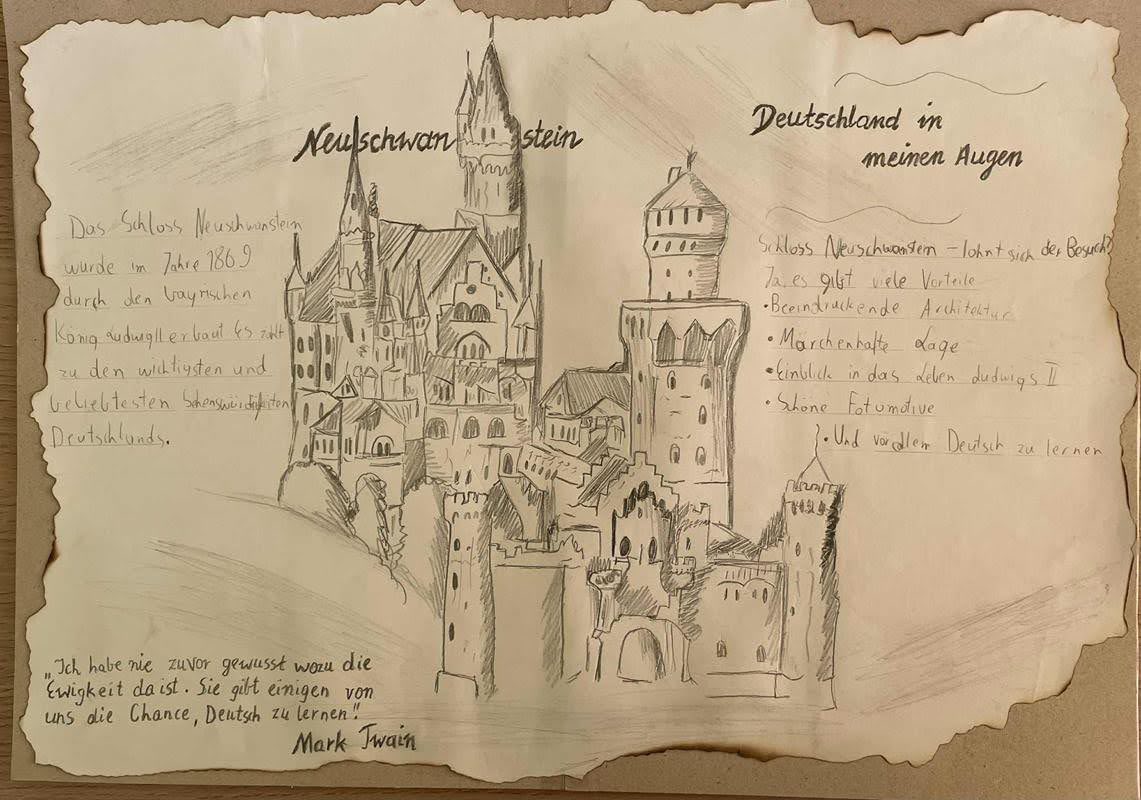 Neuschwanstein
Deutschland in
meinen Augen
Das Schloss Neuschwanstein
wurde im Jahre 1869
durch den bayrischen
König Ludwig II erbaut Es zählt
zu den wichtigsten und
beliebtesten Sehenswürdigkeiten
Deutschlands.
Schloss Neuschwanstein – lohnt sich der Besuch?
Ja, es gibt viele Vorteile
• Beeindruckende Architektur
• Märchenhafte Lage
• Einblick in das Leben Ludwigs II
• Schöne Fotomotive
• Und vor allem Deutsch zu lernen
„Ich habe nie zuvor gewusst wozu die
Ewigkeit da ist. Sie gibt einigen von
uns die Chance, Deutsch zu lernen."
Mark Twain